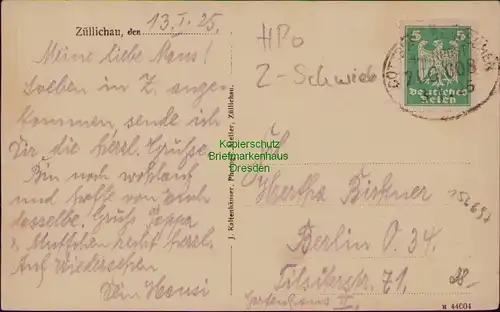 Züllichau, den 13.I.25.
Meine liebe Maus!
Soeben in Z. ange-
kommen, sende ich
Dir die herzl. Grüße.
Bin noch wohlauf
und hoffe von Euch
dasselbe. Gruß Pappa
recht herzl.
Auf Wiedersehen
Dein Hansi
J. Kaltenhäuser, Züllichau.
HPo
Z-Schwieb
5 5
Deutsches
Reich
Kopierschutz
Briefmarkenhaus
Dresden
Hertha
Berlin O. 34.
Tilsiterstr. 71.
Gartenhaus II.
M 44604